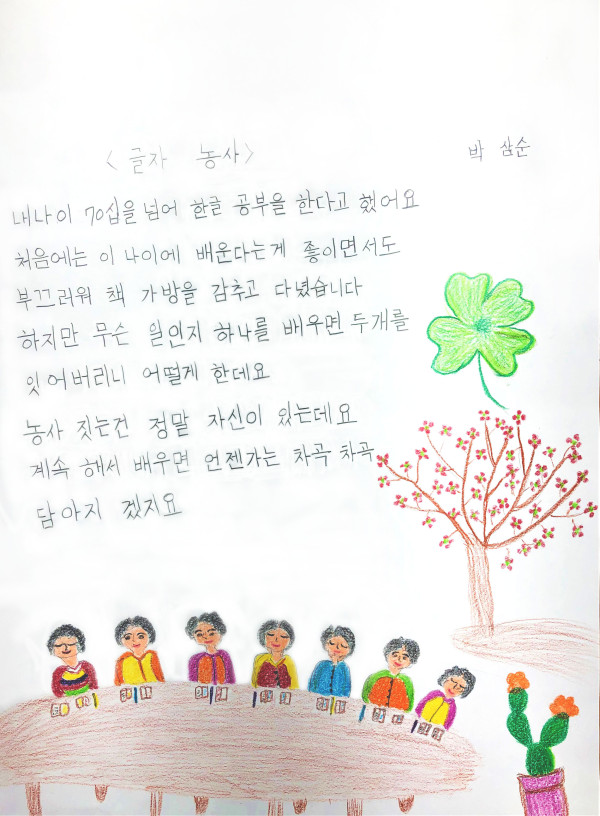 <글자 농사>
박 삼순
내나이 70십을 넘어 한글 공부을 한다고 했어요
처음에는 이 나이에 배운다는게 좋이면서도
부끄러워 책 가방을 감추고 다녔습니다
하지만 무슨 일인지 하나를 배우면 두개를
잇어버리니 어떻게 한데요
농사 짓는건 정말 자신이 있는데요
계속 해서 배우면 언젠가는 차곡 차곡
담아지 겠지요